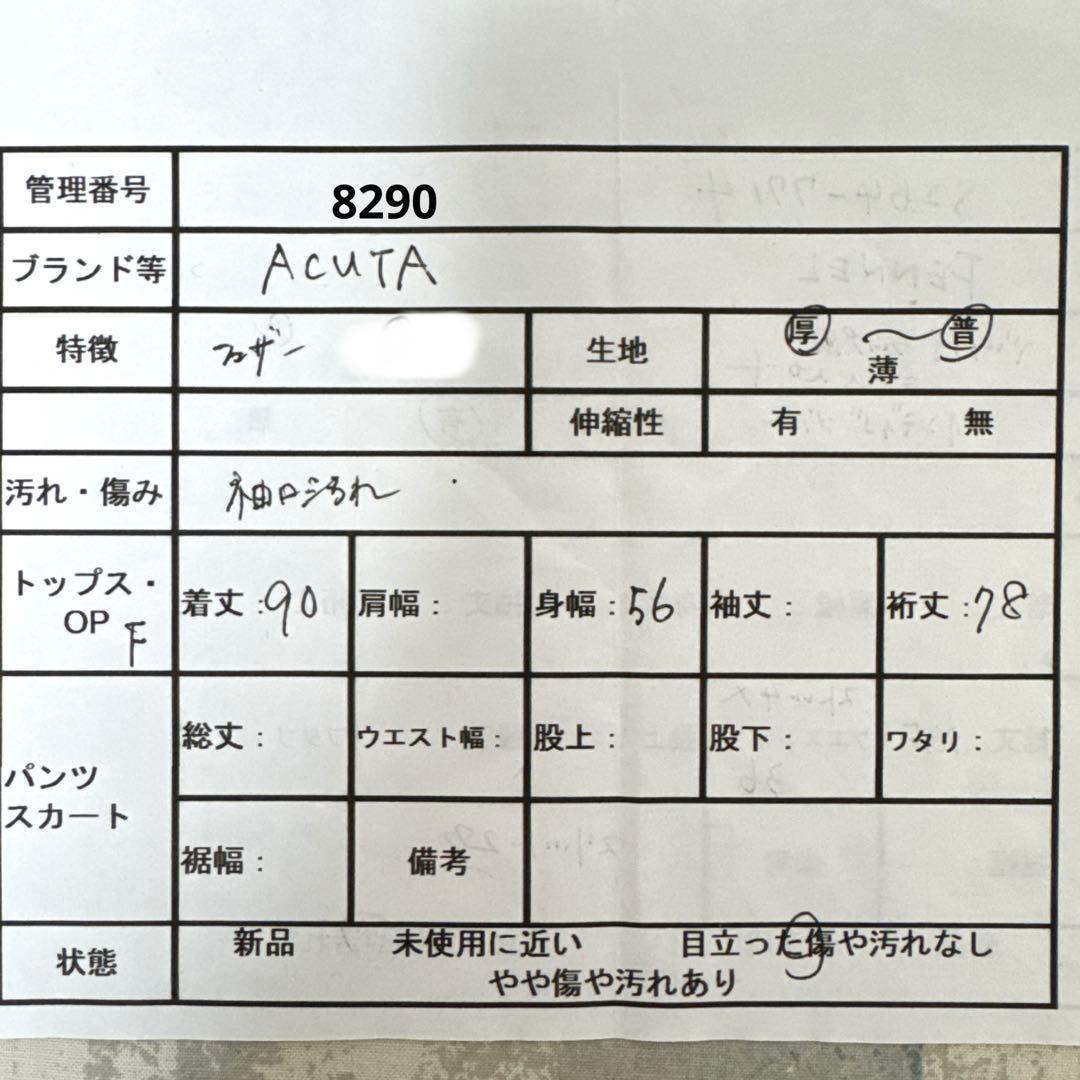 管理番号 8290
ブランド等 ACUTA
特徴 生地 厚 〜 普
薄
伸縮性 有 無
汚れ・傷み 袖口汚れ
トップス・OP F 着丈:90 肩幅: 身幅:56 袖丈: 裄丈:78
パンツ スカート 総丈: ウエスト幅: 股上: 股下: ワタリ:
裾幅: 備考
状態 新品 未使用に近い 目立った傷や汚れなし
やや傷や汚れあり